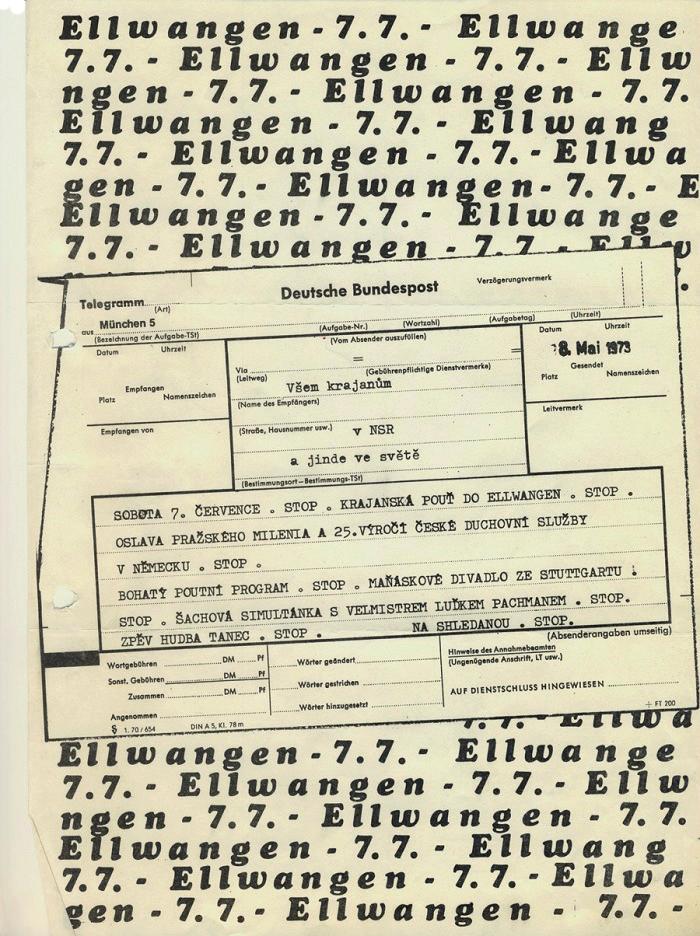 Ellwangen - 7.7. - Ellwange
7.7. - Ellwangen - 7.7. - Ellw
ngen - 7.7. - Ellwangen - 7.7.
Ellwangen - 7.7. - Ellwang
7.7. - Ellwangen - 7.7. - Ellwa
gen - 7.7. - Ellwangen - 7.7. - E
Ellwangen - 7.7. - Ellwange
7.7. - Ellwangen - 7.7. - Ellw
Telegramm (Art)
Deutsche Bundespost
Verzögerungsvermerk
aus München 5
(Bezeichnung der Aufgabe-TSt)
(Aufgabe-Nr.) (Wortzahl) (Aufgabetag) (Uhrzeit)
Datum Uhrzeit
Empfangen
Platz Namenszeichen
Empfangen von
(Vom Absender auszufüllen)
= =
Via
(Leitweg) (Gebührenpflichtige Dienstvermerke)
Všem krajanům
(Name des Empfängers)
(Straße, Hausnummer usw.) v NSR
a jinde ve světě
(Bestimmungsort—Bestimmungs-TSt)
Datum Uhrzeit
8. Mai 1973
Gesendet
Platz Namenszeichen
Leitvermerk
SOBOTA 7. ČERVENCE . STOP . KRAJANSKÁ POUŤ DO ELLWANGEN . STOP .
OSLAVA PRAŽSKÉHO MILENIA A 25.VÝROČÍ ČESKÉ DUCHOVNÍ SLUŽBY
V NĚMECKU . STOP .
BOHATÝ POUTNÍ PROGRAM . STOP . MAŇÁSKOVÉ DIVADLO ZE STUTTGARTU .
STOP . ŠACHOVÁ SIMULTÁNKA S VELMISTREM LUĎKEM PACHMANEM . STOP.
ZPĚV HUDBA TANEC . STOP . NA SHLEDANOU . STOP.
(Absenderangaben umseitig)
Wortgebühren DM Pf
Sonst. Gebühren DM Pf
Zusammen DM Pf
Angenommen
Wörter geändert
Wörter gestrichen
Wörter hinzugesetzt
Hinweise des Annahmebeamten
(Ungenügende Anschrift, LT usw.)
AUF DIENSTSCHLUSS HINGEWIESEN
§ 1. 70 / 654 DIN A 5, Kl. 78 m
÷ FT 200
7.7. - Ellwa
Ellwangen - 7.7. - Ellwange
7.7. - Ellwangen - 7.7. - Ellw
ngen - 7.7. - Ellwangen - 7.7.
Ellwangen - 7.7. - Ellwang
7.7. - Ellwangen - 7.7. - Ellwa
gen - 7.7. - Ellwangen - 7.7. -